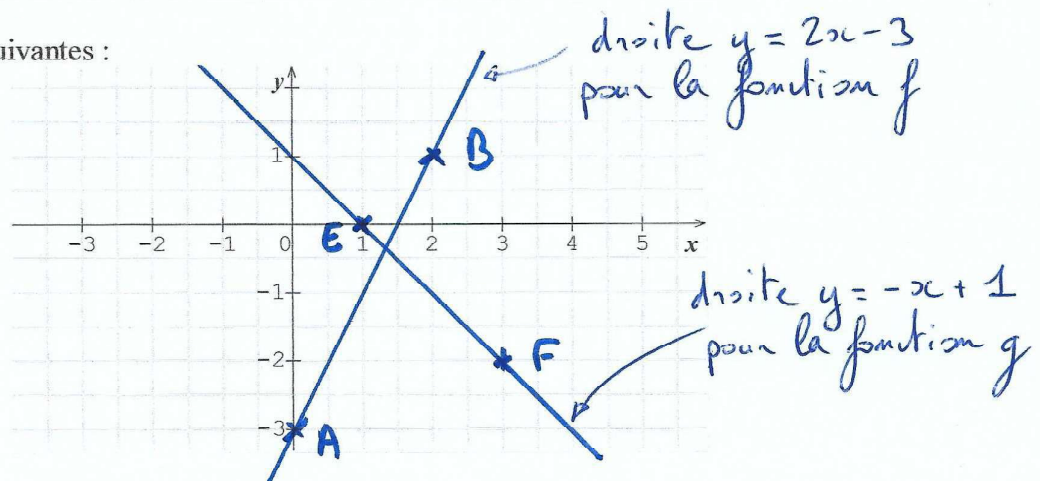 uivantes :
droite y = 2x - 3
pour la fonction f
y
1
B
-3 -2 -1 0 E 1 2 3 4 5 x
-1
droite y = -x + 1
pour la fonction g
-2
F
-3
A